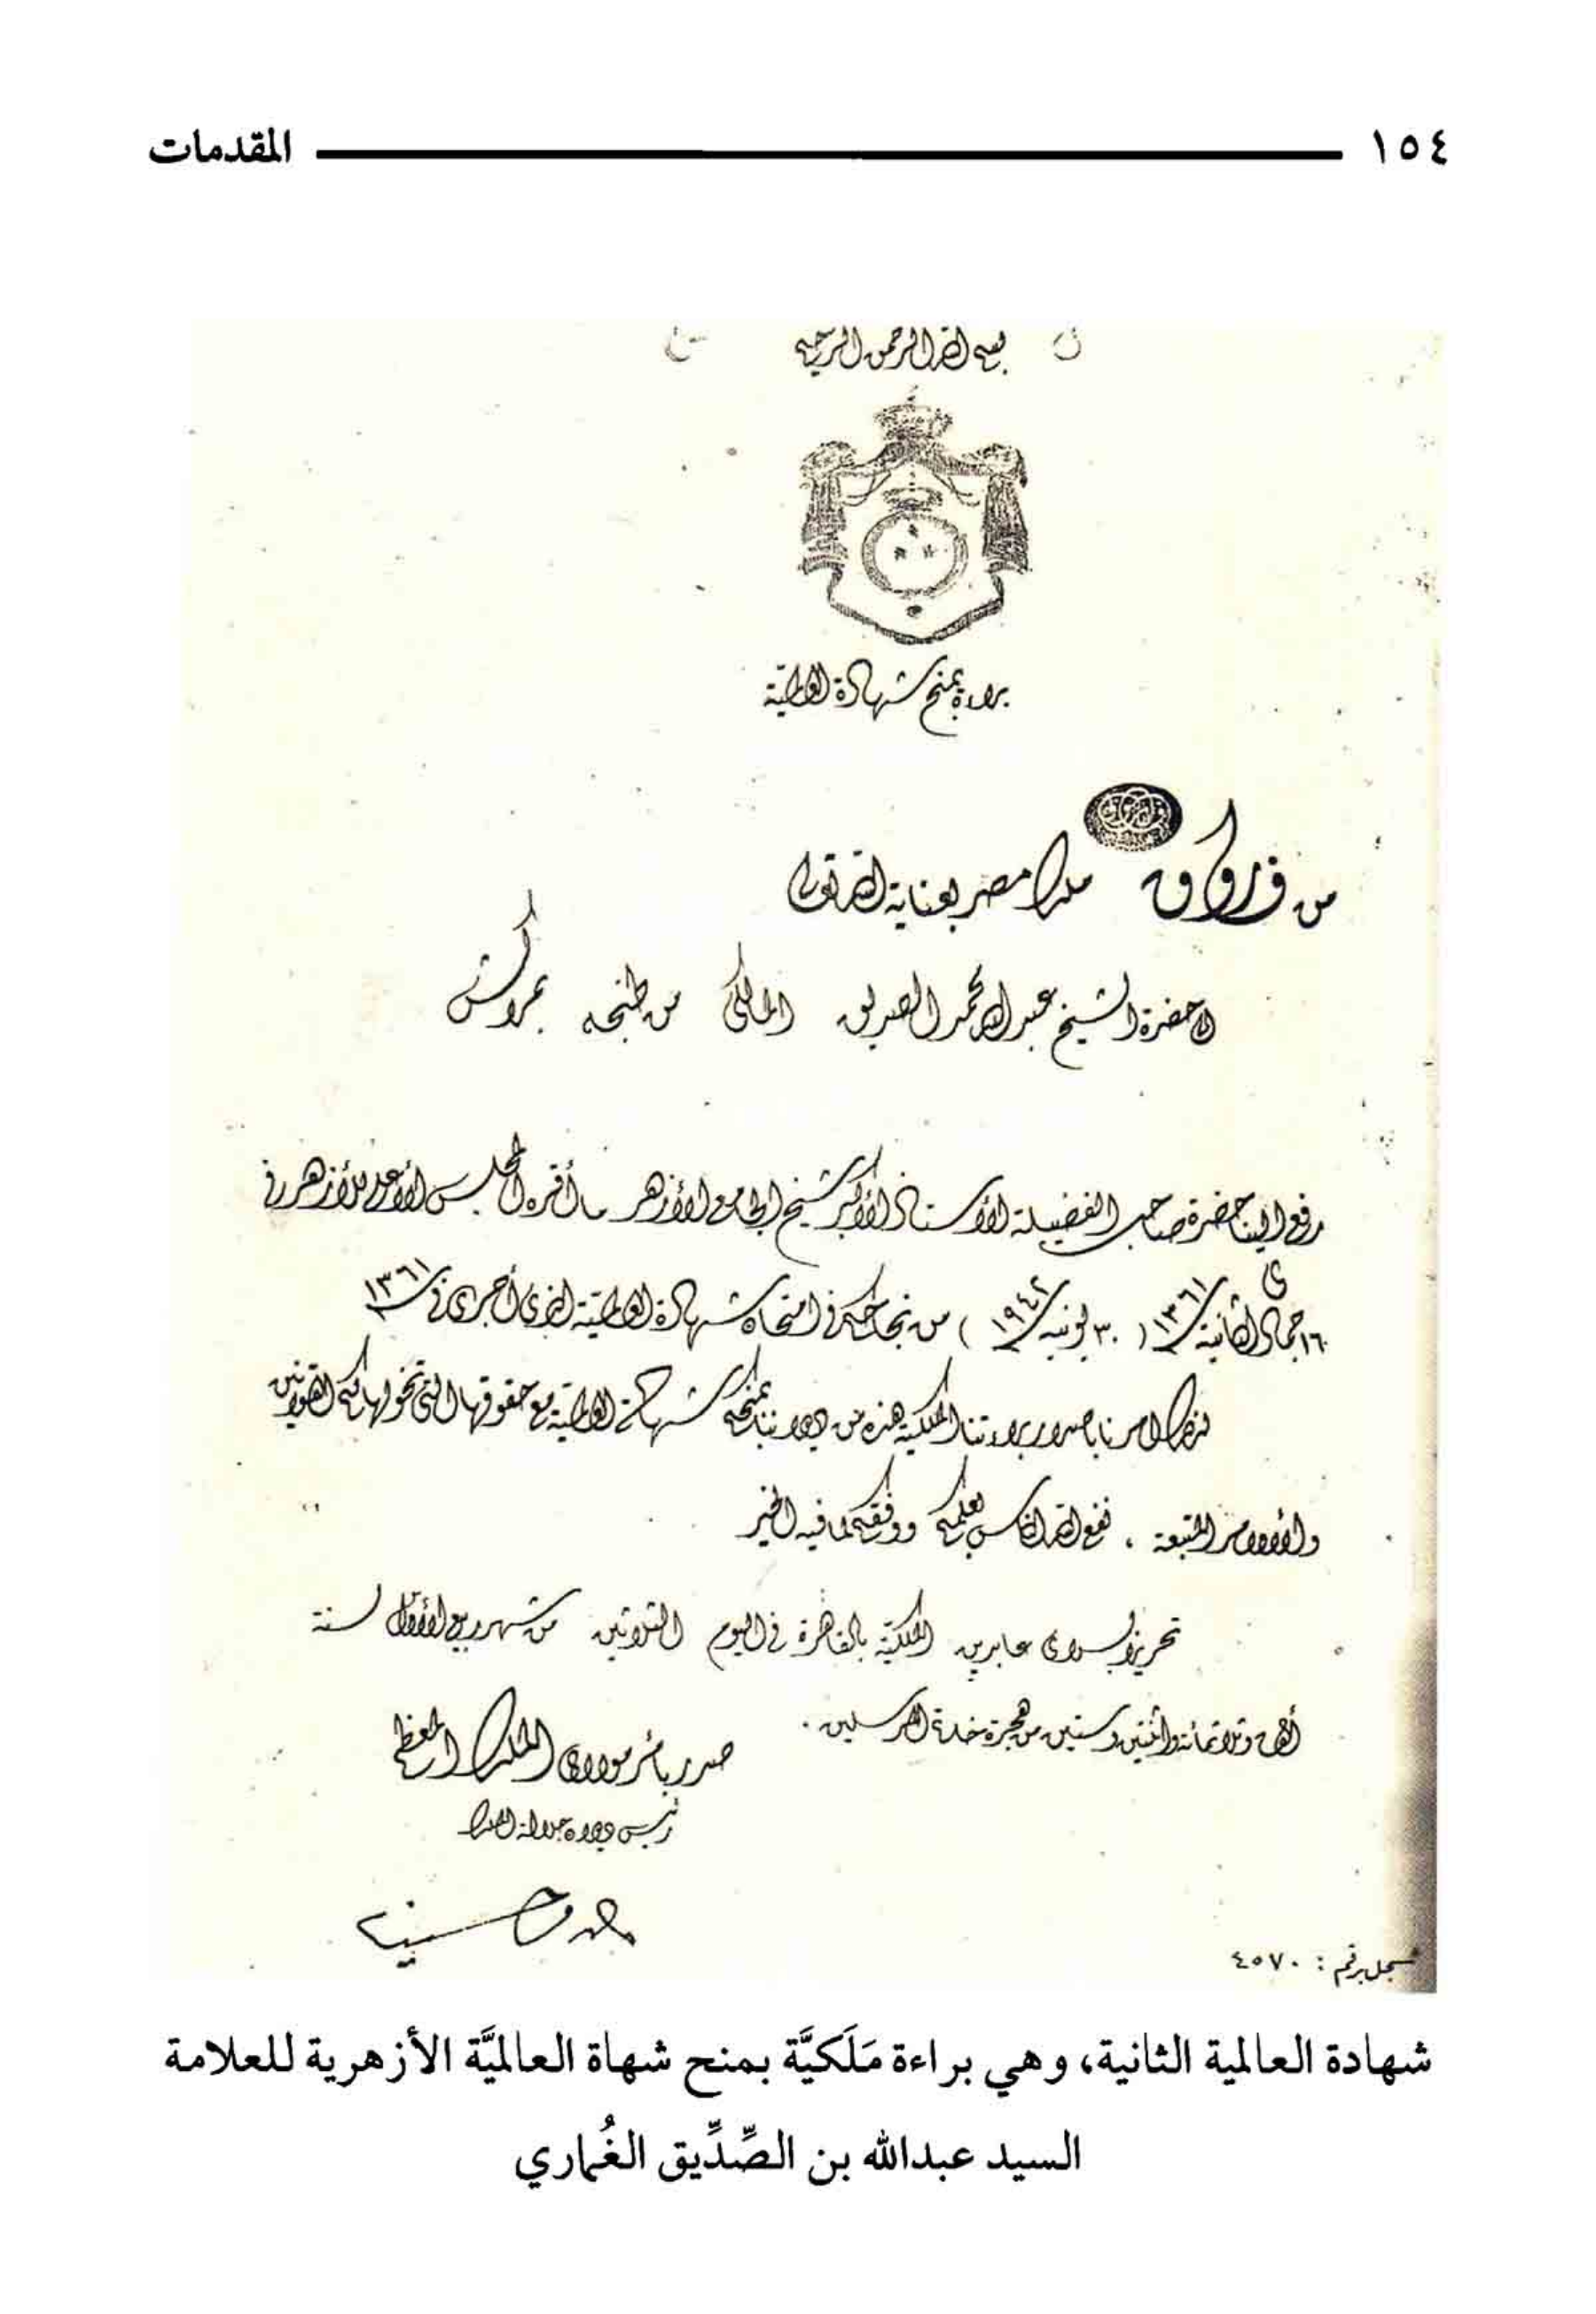 ١٥٤ المقدمات
بسم الله الرحمن الرحيم
براءة بمنح شهادة العالمية
من فاروق ملك مصر بعناية الله تعالى
إلى حضرة الشيخ عبد الله محمد الصديق المالكى من طنجه بمراكش
رفع إلينا حضرة صاحب الفضيلة الأستاذ الأكبر شيخ الجامع الأزهر ما أقره المجلس الأعلى للأزهر فى
١٦ جمادى الثانية ١٣٦١ ( ٣٠ يونيه ١٩٤٢ ) من نجاحكم فى امتحان شهادة العالمية الذى أجرى فى ١٣٦١
لذلك أمرنا بإصدار براءتنا الملكية هذه من ديواننا بمنحكم شهادة العالمية مع حقوقها التى تخولها لكم القوانين
والأوامر المتبعة . نفع الله الناس بعلمكم ووفقكم لما فيه الخير
تحريرا بسراى عابدين الملكية بالقاهرة فى اليوم الثلاثين من شهر ربيع الأول سنة
ألف وثلاثمائة واثنتين وستين من هجرة خاتم المرسلين .
صدر بأمر مولاى الملك المعظم
رئيس ديوان جلالة الملك
سجل برقم : ٤٥٧٠
شهادة العالمية الثانية، وهي براءة مَلَكيَّة بمنح شهاة العالميَّة الأزهرية للعلامة
السيد عبدالله بن الصِّدِّيق الغُماري